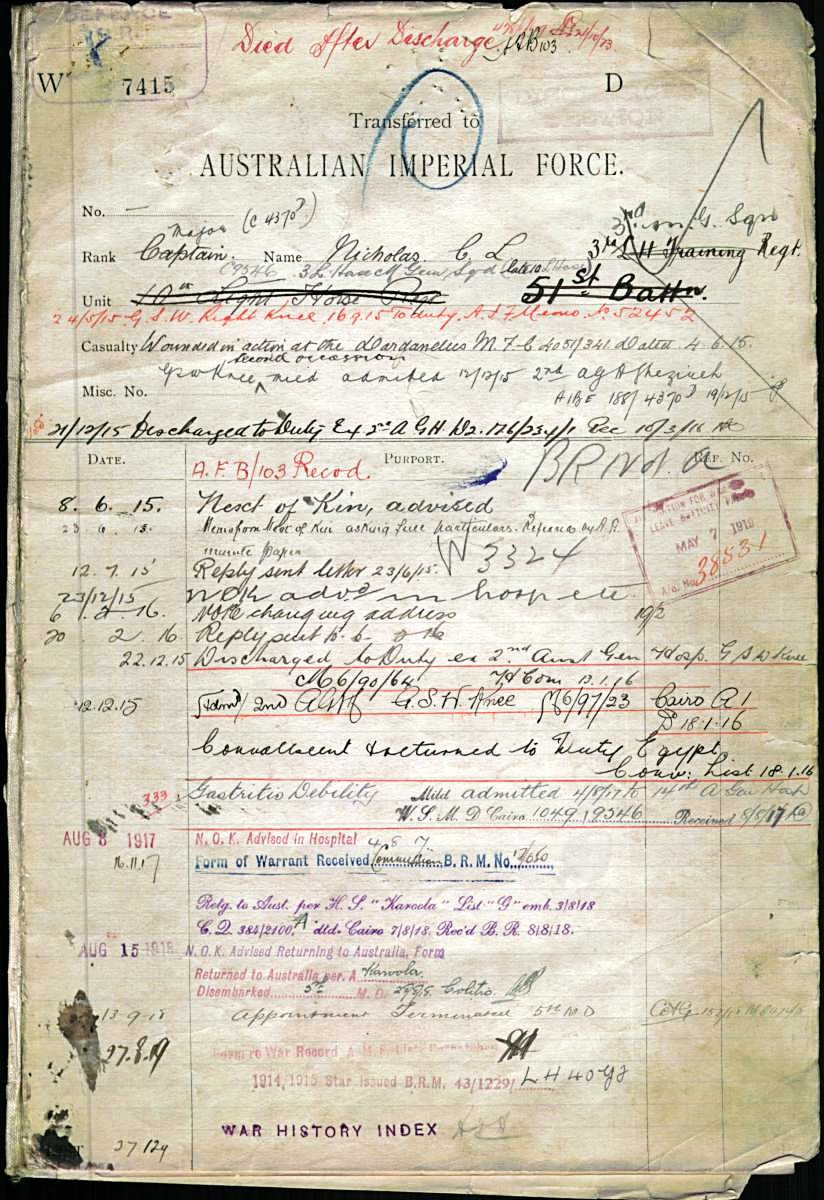 DEFENCE
Died After Discharge
AFB103
W 7415 D
Transferred to
AUSTRALIAN IMPERIAL FORCE.
No. — (C 4370)
Major
3rd M. G. Sqn
Rank Captain. Name Nicholas. C L 3rd L H Training Regt.
C9546
Unit 10th Light Horse Regt 51st Battn.
24/5/15 G.S.W. Right Knee, 16.9.15 To duty, A.I.F. Memo. No 52452
Casualty Wounded in action at the Dardanelles M.F.C 4051/341 Dated 4.6.15.
second occasion
GSW Knee, mild admitted 12/12/15 2nd AGH Ghezireh
Misc. No. AIBE 188/ 4370 19/12/15
21/12/15 Discharged to Duty Ex 2nd A G H Rec 10/3/16
DATE. PURPORT. REF. No.
A.F.B/103 Recod. BR No. a
8. 6. 15. Next of Kin, advised
23 6 15. Memo from Next of Kin asking full particulars.
minute paper W 3324
12. 7. 15 Reply sent letter 23/6/15.
APPLICATION FOR WAR
LEAVE GRATUITY
MAY 7 1919
A/G. No. 38531
23/12/15 NOK advd in hosp etc.
6 . 2. 16. Note changing address 19/2
20 2. 16. Reply sent
22.12.15 Discharged to Duty ex 2nd Aust Gen Hosp. G S W Knee
M6/90/64 13.1.16
12.12.15 Admd 2nd AGH G.S.W. Knee M6/97/23 Cairo A 1
18.1.16
Convalescent & returned to Duty Egypt
Conv: List 18.1.16
333 Gastritis Debility Mild admitted 4/8/17 to 14th A Gen Hosp
W.S.M.D Cairo 1049 9546 Received 8/8/17
AUG 8 1917 N. O. K. Advised in Hospital 4. 8. 7.
16.11.17 Form of Warrant Received Commission B. R. M. No.
Retg. to Aust. per H. S. "Karoola" List "G" emb. 3/8/18
C. Q. 384/2100 A dtd. Cairo 7/8/18. Rec'd B. R. 8/8/18.
AUG 15 1918 N. O. K. Advised Returning to Australia, Form
Returned to Australia per. A Karoola.
Disembarked 5th M. D. 29/8/18 Colitis.
13.9.18 Appointment Terminated 5th M D
27.8.19 Form re War Record
1914/1915 Star Issued B.R.M. 43/1229/ L H 40
WAR HISTORY INDEX